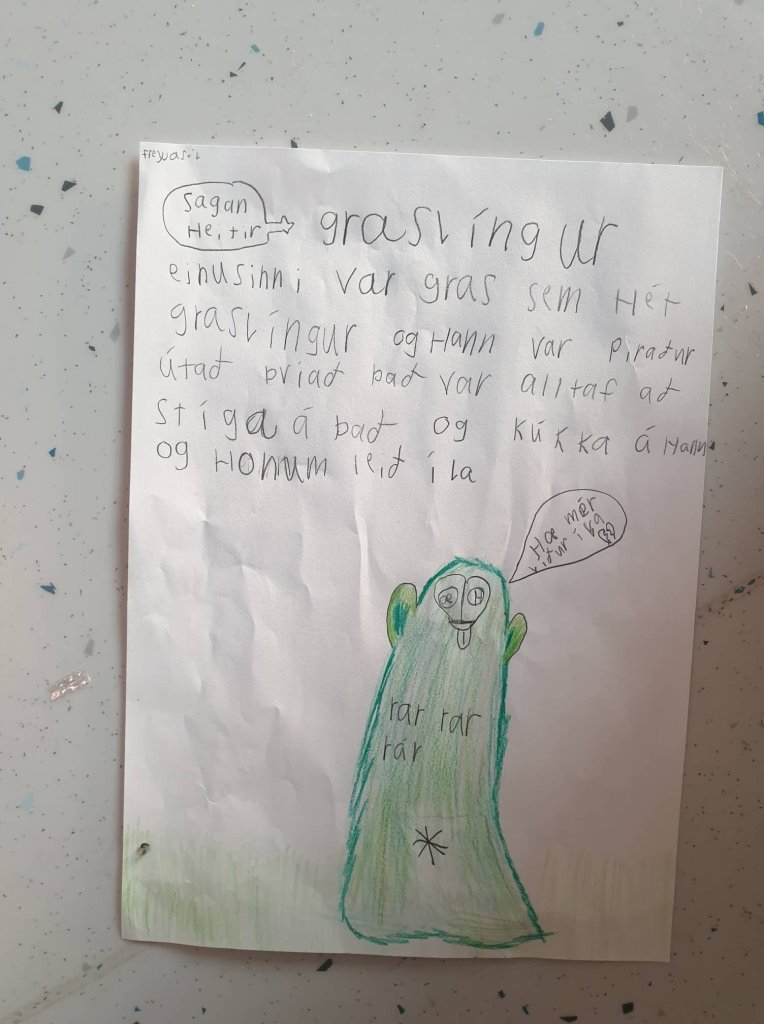 freyuasól
sagan
Heitir
graslíngur
einusinni var gras sem Hét
graslíngur og Hann var piraður
útað þvíað það var alltaf að
stíga á það og kúkka á Hann
og Honum leið íla
Hæ mér
líður íla
rar rar
rár